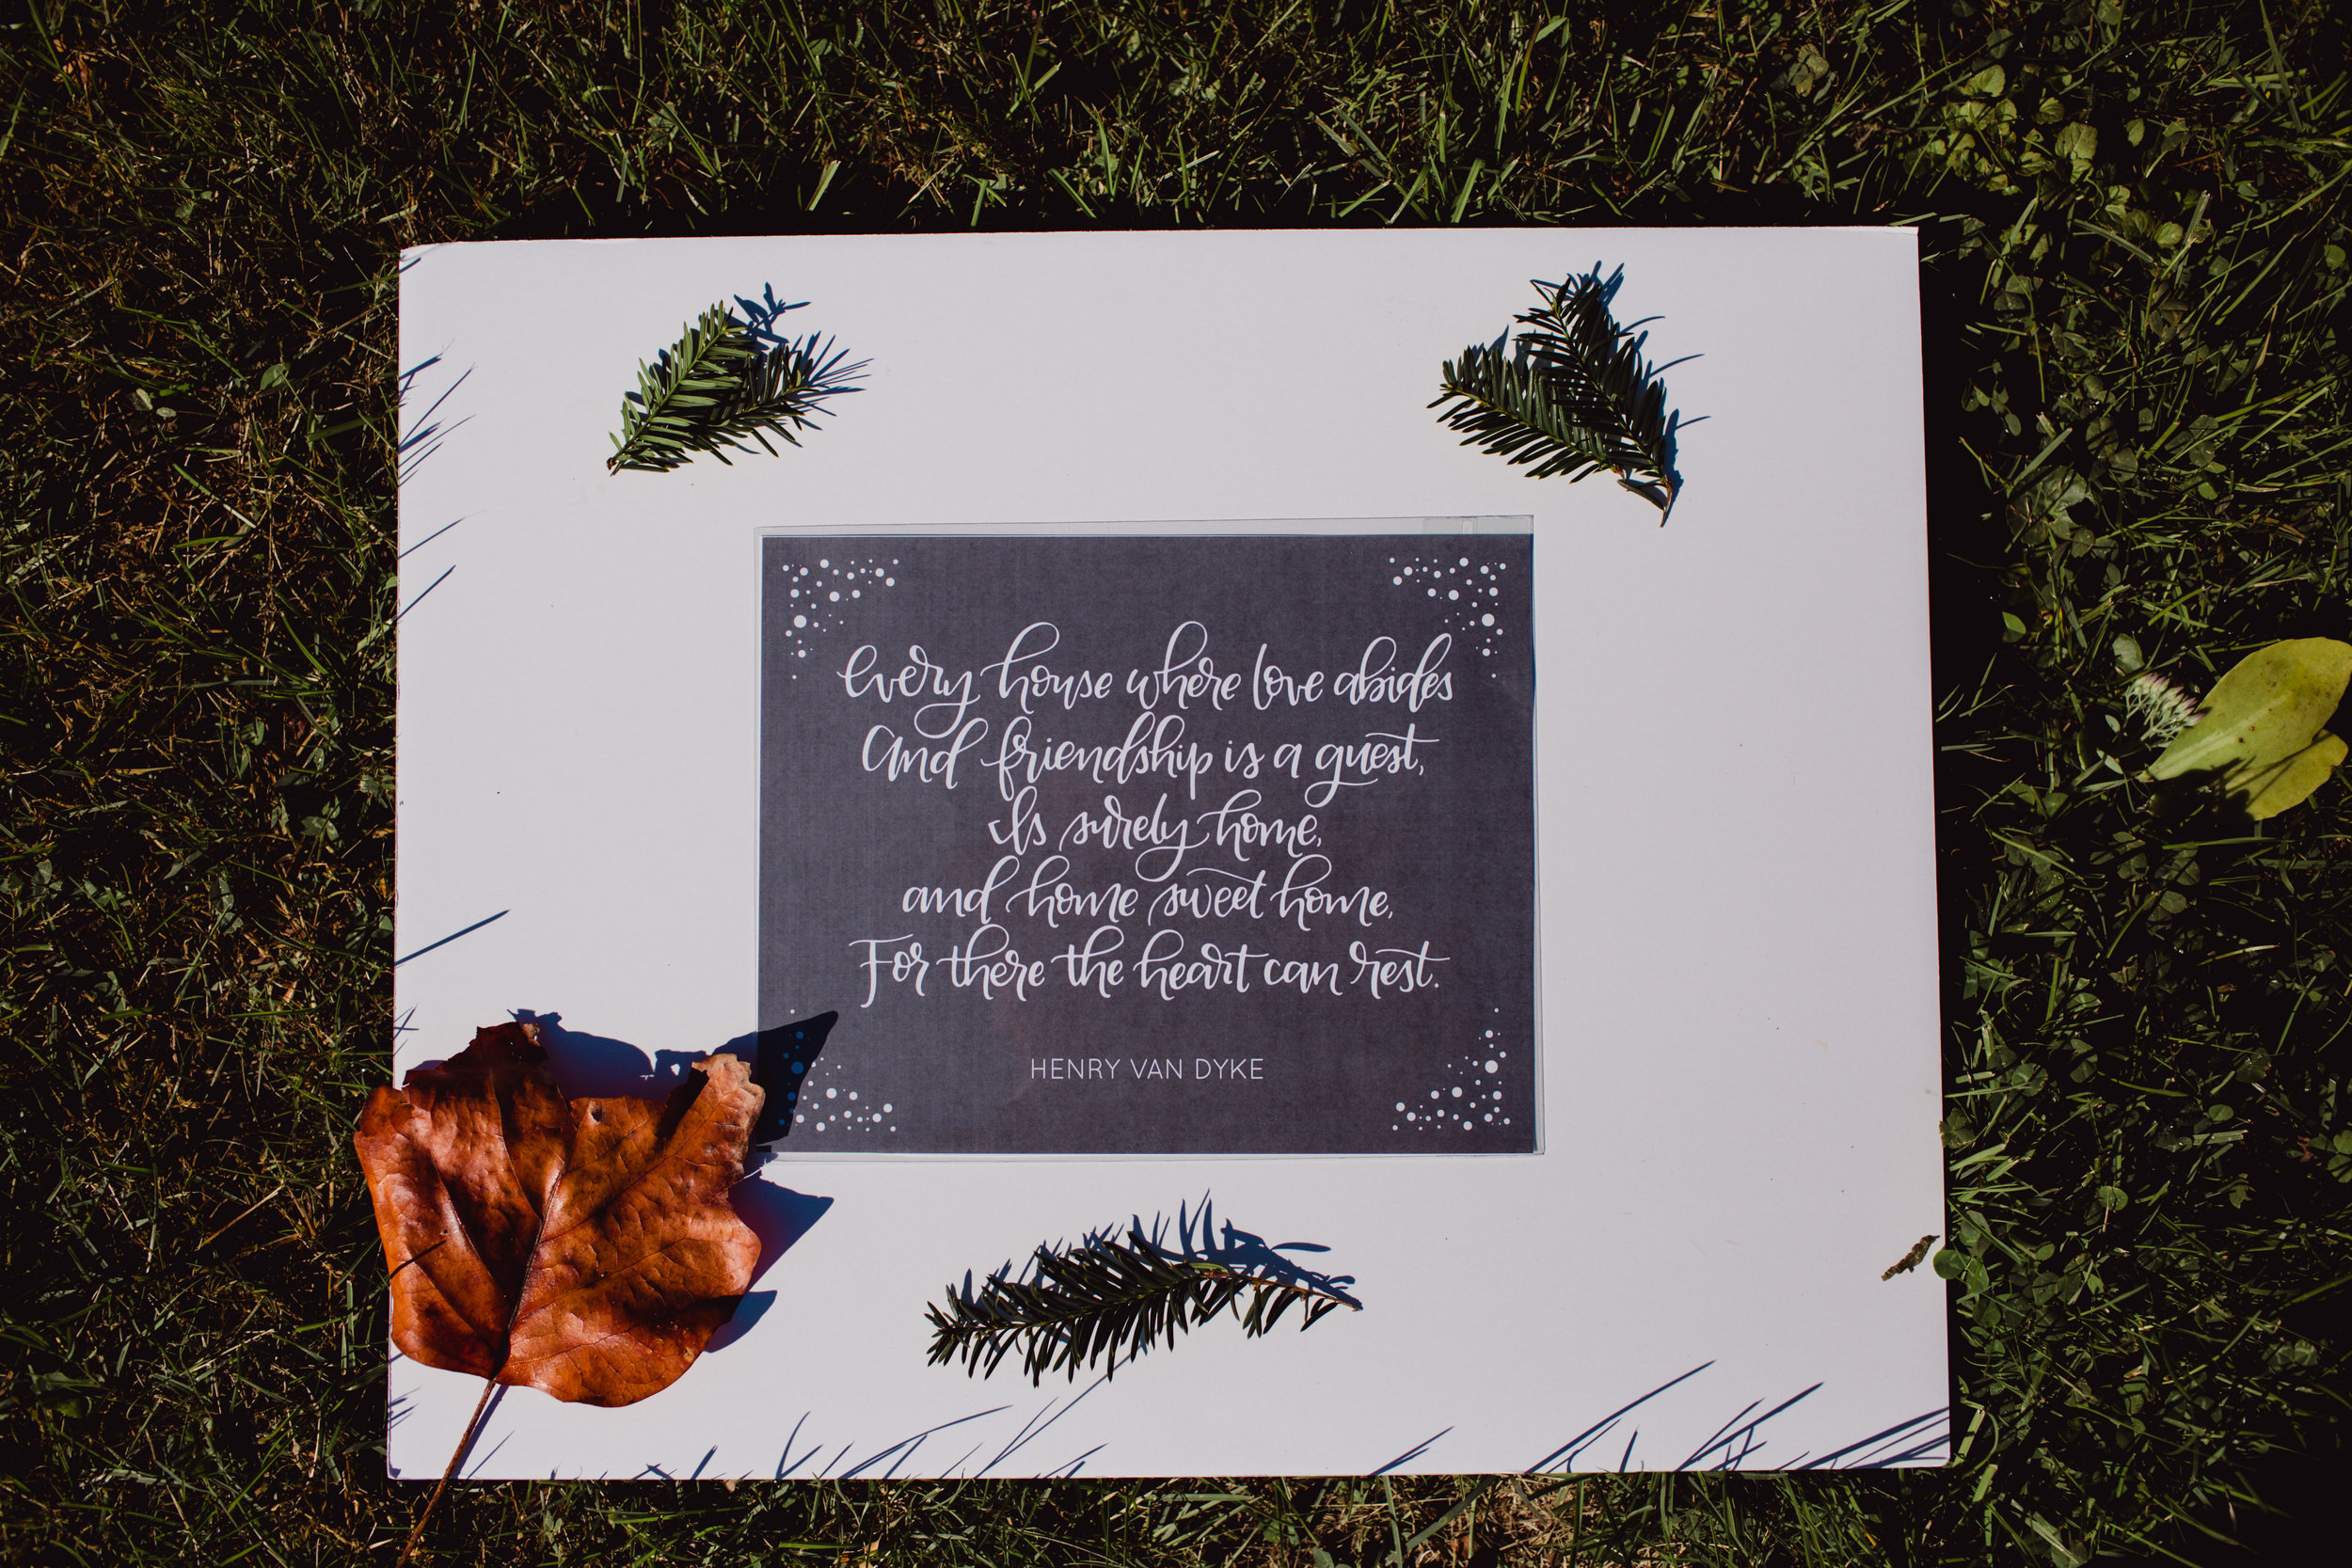 Every house where love abides
And friendship is a guest,
Is surely home,
and home sweet home,
For there the heart can rest.
HENRY VAN DYKE